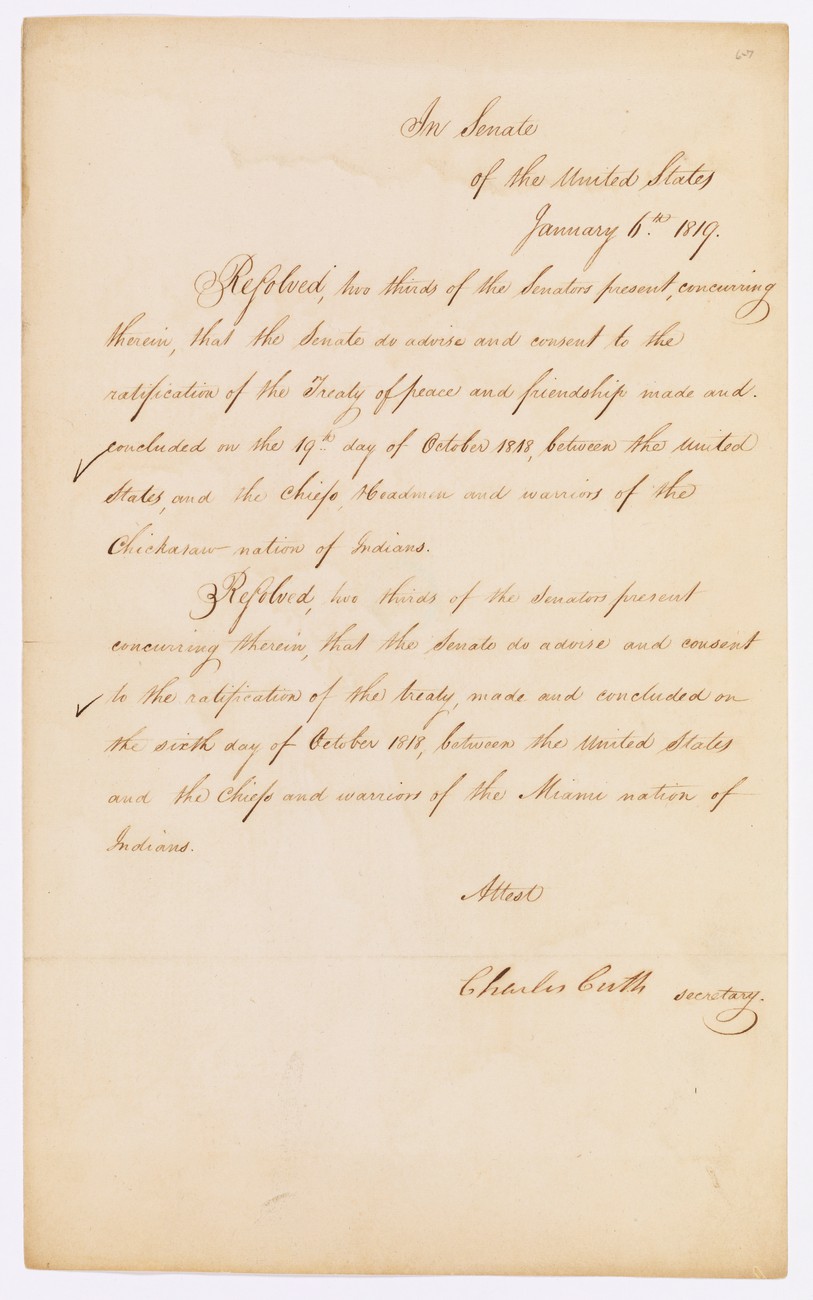 In Senate
of the United States
January 6.th 1819.
Resolved, two thirds of the Senators present, concurring
therein, that the Senate do advise and consent to the
ratification of the Treaty of peace and friendship made and.
concluded on the 19.th day of October 1818, between the United
States, and the Chiefs, Headmen and warriors of the
Chickasaw nation of Indians.
Resolved, two thirds of the Senators present
concurring therein, that the Senate do advise and consent
to the ratification of the treaty, made and concluded on
the sixth day of October 1818, between the United States
and the Chiefs and warriors of the Miami nation of
Indians.
Attest
Charles Cutts secretary.